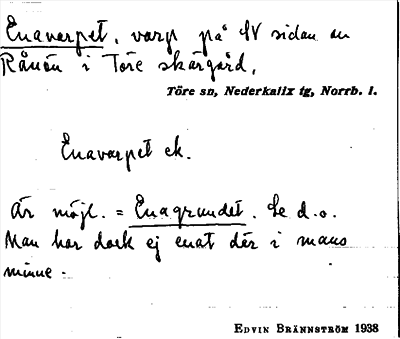 Enavarpet, varp på SV sidan om
Rånön i Töre skärgård.
Töre sn, Nederkalix tg, Norrb. l.
Enavarpet ek.
Är möjl. = Enagrundet. Se d.o.
Man har dock ej enat där i mans
minne.
EDVIN BRÄNNSTRÖM 1938